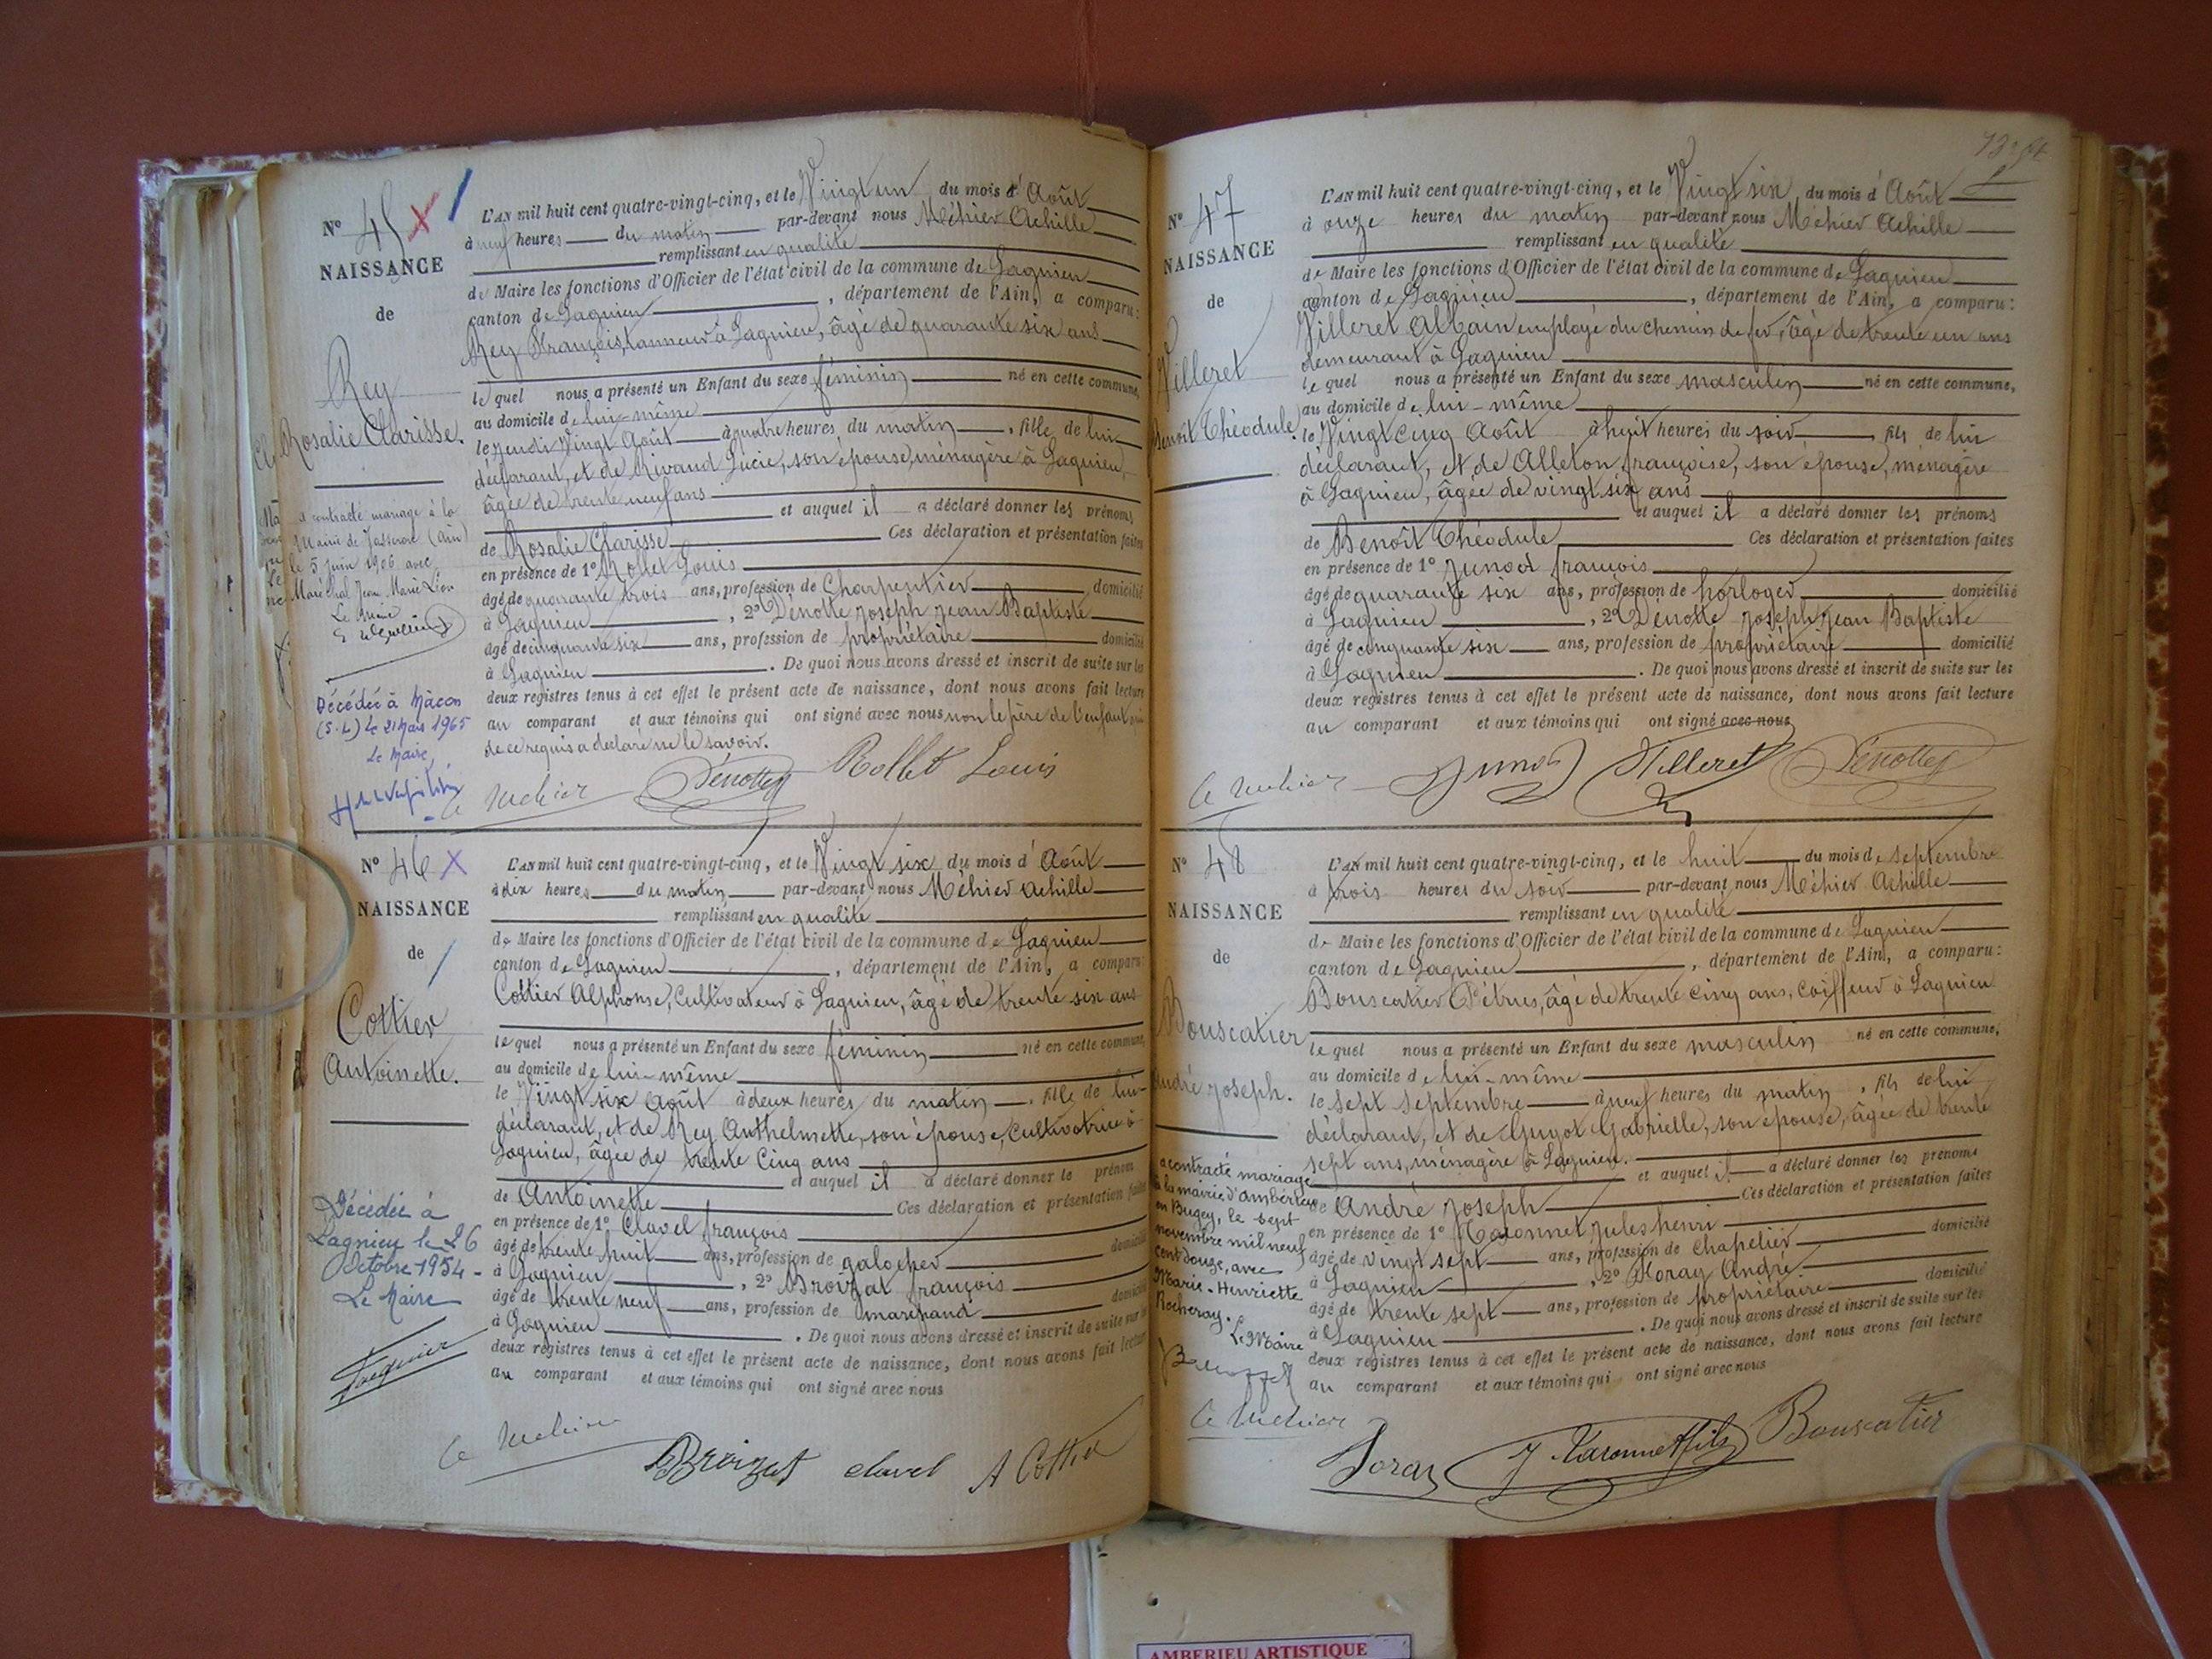 N° 45
NAISSANCE
de
Rey
Rosalie Clarisse.
a contracté mariage à la
Mairie de Jasseron (Ain)
le 5 juin 1906 avec
Maréchal Jean Marie Léon
Le Maire
Décédée à Mâcon
(S.-L) le 21 Mars 1965
Le Maire,
L'AN mil huit cent quatre-vingt-cinq, et le Vingt un du mois d'Août
à neuf heures du matin par-devant nous Méhier Achille
remplissant en qualité
de Maire les fonctions d'Officier de l'état civil de la commune de Lagnieu
canton de Lagnieu, département de l'Ain, a comparu:
Rey François, tanneur à Lagnieu, âgé de quarante six ans
lequel nous a présenté un Enfant du sexe féminin né en cette commune,
au domicile de lui-même
le jeudi Vingt Août à quatre heures du matin, fille de lui
déclarant, et de Rivaud Lucie, son épouse, ménagère à Lagnieu,
âgée de trente neuf ans
et auquel il a déclaré donner les prénoms
de Rosalie Clarisse Ces déclaration et présentation faites
en présence de 1° Rollet Louis
âgé de quarante trois ans, profession de Charpentier domicilié
à Lagnieu, 2° Dénotte Joseph Jean Baptiste
âgé de cinquante six ans, profession de propriétaire domicilié
à Lagnieu. De quoi nous avons dressé et inscrit de suite sur les
deux registres tenus à cet effet le présent acte de naissance, dont nous avons fait lecture
au comparant et aux témoins qui ont signé avec nous non le père de l'enfant qui
de ce requis a déclaré ne le savoir.
A Méhier Dénotte Rollet Louis
N° 46
NAISSANCE
de
Cottier
Antoinette.
Décédée à
Lagnieu le 26
Octobre 1954
Le Maire
L'AN mil huit cent quatre-vingt-cinq, et le Vingt six du mois d'Août
à dix heures du matin par-devant nous Méhier Achille
remplissant en qualité
de Maire les fonctions d'Officier de l'état civil de la commune de Lagnieu
canton de Lagnieu, département de l'Ain, a comparu:
Cottier Alphonse, Cultivateur à Lagnieu, âgé de trente six ans
lequel nous a présenté un Enfant du sexe féminin né en cette commune,
au domicile de lui-même
le Vingt six Août à deux heures du matin, fille de lui-
déclarant, et de Rey Anthelmette, son épouse, Cultivatrice à
Lagnieu, âgée de trente cinq ans
et auquel il a déclaré donner le prénom
de Antoinette Ces déclaration et présentation faites
en présence de 1° Clavel françois
âgé de trente huit ans, profession de galocher domicilié
à Lagnieu, 2° Broizat françois
âgé de trente neuf ans, profession de marchand domicilié
à Lagnieu. De quoi nous avons dressé et inscrit de suite sur les
deux registres tenus à cet effet le présent acte de naissance, dont nous avons fait lecture
au comparant et aux témoins qui ont signé avec nous
A Méhier Broizat Clavel A Cottier
N° 47
NAISSANCE
de
Villeret
Benoît Théodule.
L'AN mil huit cent quatre-vingt-cinq, et le Vingt six du mois d'Août
à onze heures du matin par-devant nous Méhier Achille
remplissant en qualité
de Maire les fonctions d'Officier de l'état civil de la commune de Lagnieu
canton de Lagnieu, département de l'Ain, a comparu:
Villeret Albain employé du chemin de fer, âgé de trente un ans
demeurant à Lagnieu
lequel nous a présenté un Enfant du sexe masculin né en cette commune,
au domicile de lui-même
le Vingt cinq Août à huit heures du soir, fils de lui
déclarant, et de Alleton françoise, son épouse, ménagère
à Lagnieu, âgée de vingt six ans
et auquel il a déclaré donner les prénoms
de Benoît Théodule Ces déclaration et présentation faites
en présence de 1° Junod françois
âgé de quarante six ans, profession de horloger domicilié
à Lagnieu, 2° Dénotte Joseph Jean Baptiste
âgé de cinquante six ans, profession de propriétaire domicilié
à Lagnieu. De quoi nous avons dressé et inscrit de suite sur les
deux registres tenus à cet effet le présent acte de naissance, dont nous avons fait lecture
au comparant et aux témoins qui ont signé avec nous
A Méhier Junod Villeret Dénotte
N° 48
NAISSANCE
de
Bouscatier
André Joseph.
a contracté mariage
à la mairie d'Ambérieu
en Bugey, le sept
novembre mil neuf
cent douze, avec
Marie-Henriette
Rocheray.
Le Maire
L'AN mil huit cent quatre-vingt-cinq, et le huit du mois de septembre
à trois heures du soir par-devant nous Méhier Achille
remplissant en qualité
de Maire les fonctions d'Officier de l'état civil de la commune de Lagnieu
canton de Lagnieu, département de l'Ain, a comparu:
Bouscatier Pétrus, âgé de trente cinq ans, Coiffeur à Lagnieu
lequel nous a présenté un Enfant du sexe masculin né en cette commune,
au domicile de lui-même
le sept septembre à neuf heures du matin, fils de lui
déclarant, et de Guyot Gabrielle, son épouse, âgée de trente
sept ans, ménagère à Lagnieu.
et auquel il a déclaré donner les prénoms
de André Joseph Ces déclaration et présentation faites
en présence de 1° Jules henri
âgé de vingt sept ans, profession de Chapelier domicilié
à Lagnieu, 2° Moray André
âgé de trente sept ans, profession de propriétaire domicilié
à Lagnieu. De quoi nous avons dressé et inscrit de suite sur les
deux registres tenus à cet effet le présent acte de naissance, dont nous avons fait lecture
au comparant et aux témoins qui ont signé avec nous
A Méhier Bouscatier
AMBERIEU ARTISTIQUE